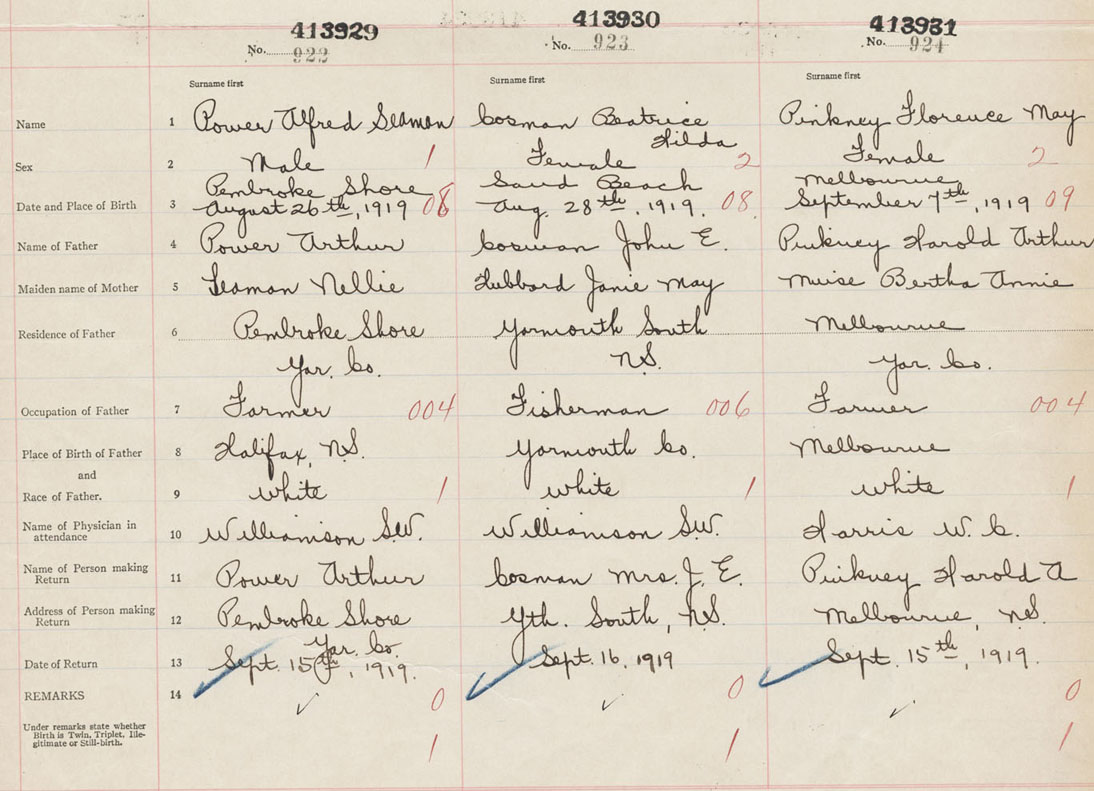 413929 413930 413931
No. 922 No. 923 No. 924
Surname first Surname first Surname first
Name 1 Power Alfred Seaman Cosman Beatrice Pinkney Florence May
Hilda
Sex 2 Male 1 Female 2 Female 2
Pembroke Shore Sand Beach Melbourne
Date and Place of Birth 3 August 26th, 1919 08 Aug. 28th, 1919. 08 September 7th, 1919 09
Name of Father 4 Power Arthur Cosman John E. Pinkney Harold Arthur
Maiden name of Mother 5 Seaman Nellie Hubbard Janie May Muise Bertha Annie
Residence of Father 6 Pembroke Shore Yarmouth South Melbourne
Yar. Co. N.S. Yar. Co.
Occupation of Father 7 Farmer 004 Fisherman 006 Farmer 004
Place of Birth of Father 8 Halifax, N.S. Yarmouth Co. Melbourne
and
Race of Father. 9 White 1 White 1 White 1
Name of Physician in
attendance 10 Williamson S.W. Williamson S.W. Harris W. C.
Name of Person making
Return 11 Power Arthur Cosman Mrs. J. E. Pinkney Harold A
Address of Person making
Return 12 Pembroke Shore Yth. South, N.S. Melbourne, N.S.
Yar. Co.
Date of Return 13 Sept. 15th, 1919. Sept. 16, 1919 Sept. 15th, 1919.
REMARKS 14 0 0 0
Under remarks state whether
Birth is Twin, Triplet, Ille-
gitimate or Still-birth.
1 1 1